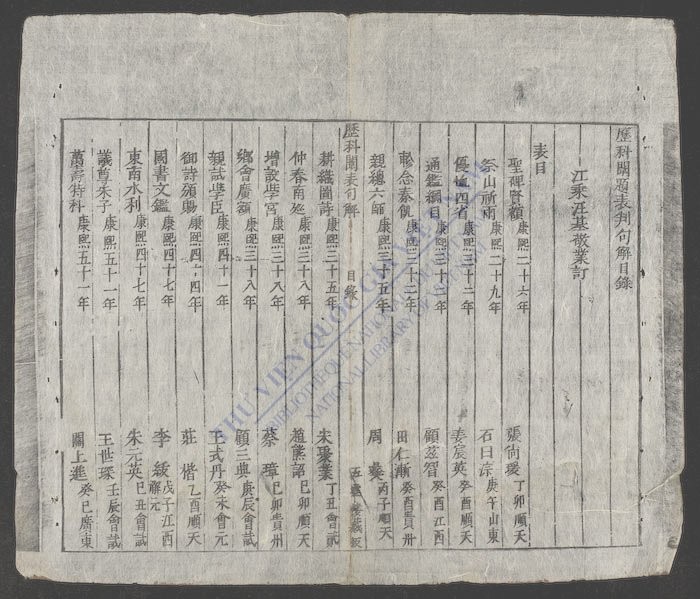 歷科闈題表判句解目錄
江乘汪基敬業訂
表目
聖碑賢額 康熙二十六年 張尚瑗 丁卯順天
祭山祈雨 康熙二十九年 石曰琮 庚午山東
優恤四省 康熙三十二年 姜宸英 癸酉順天
通鑑綱目 康熙三十二年 顧茲智 癸酉江西
軫念秦饑 康熙三十二年 田仁 癸酉貴州
親總六師 康熙三十五年 周 丙子順天
歷科闈表句解 目錄
耕織圖詩 康熙三十五年 朱 丁丑會試
仲春南廵 康熙三十八年 趙熊詔 己卯順天
增設學宮 康熙三十八年 蔡璋 己卯貴州
鄉會廣額 康熙三十八年 顧三典 庚辰會試
親試學臣 康熙四十一年 王式丹 癸未會元
御詩頒賜 康熙四十四年 莊楷 乙酉順天
國書文鑑 康熙四十七年 李紱 戊子江西 解元
東南水利 康熙四十七年 朱元英 己丑會試
議尊朱子 康熙五十一年 王世琛 壬辰會試
萬壽特科 康熙五十一年 關上進 癸巳廣東
THƯ VIỆN QUỐC GIA VIỆT NAM
BIBLIOTHEQUE NATIONALE DU VIETNAM
NATIONAL LIBRARY OF VIETNAM